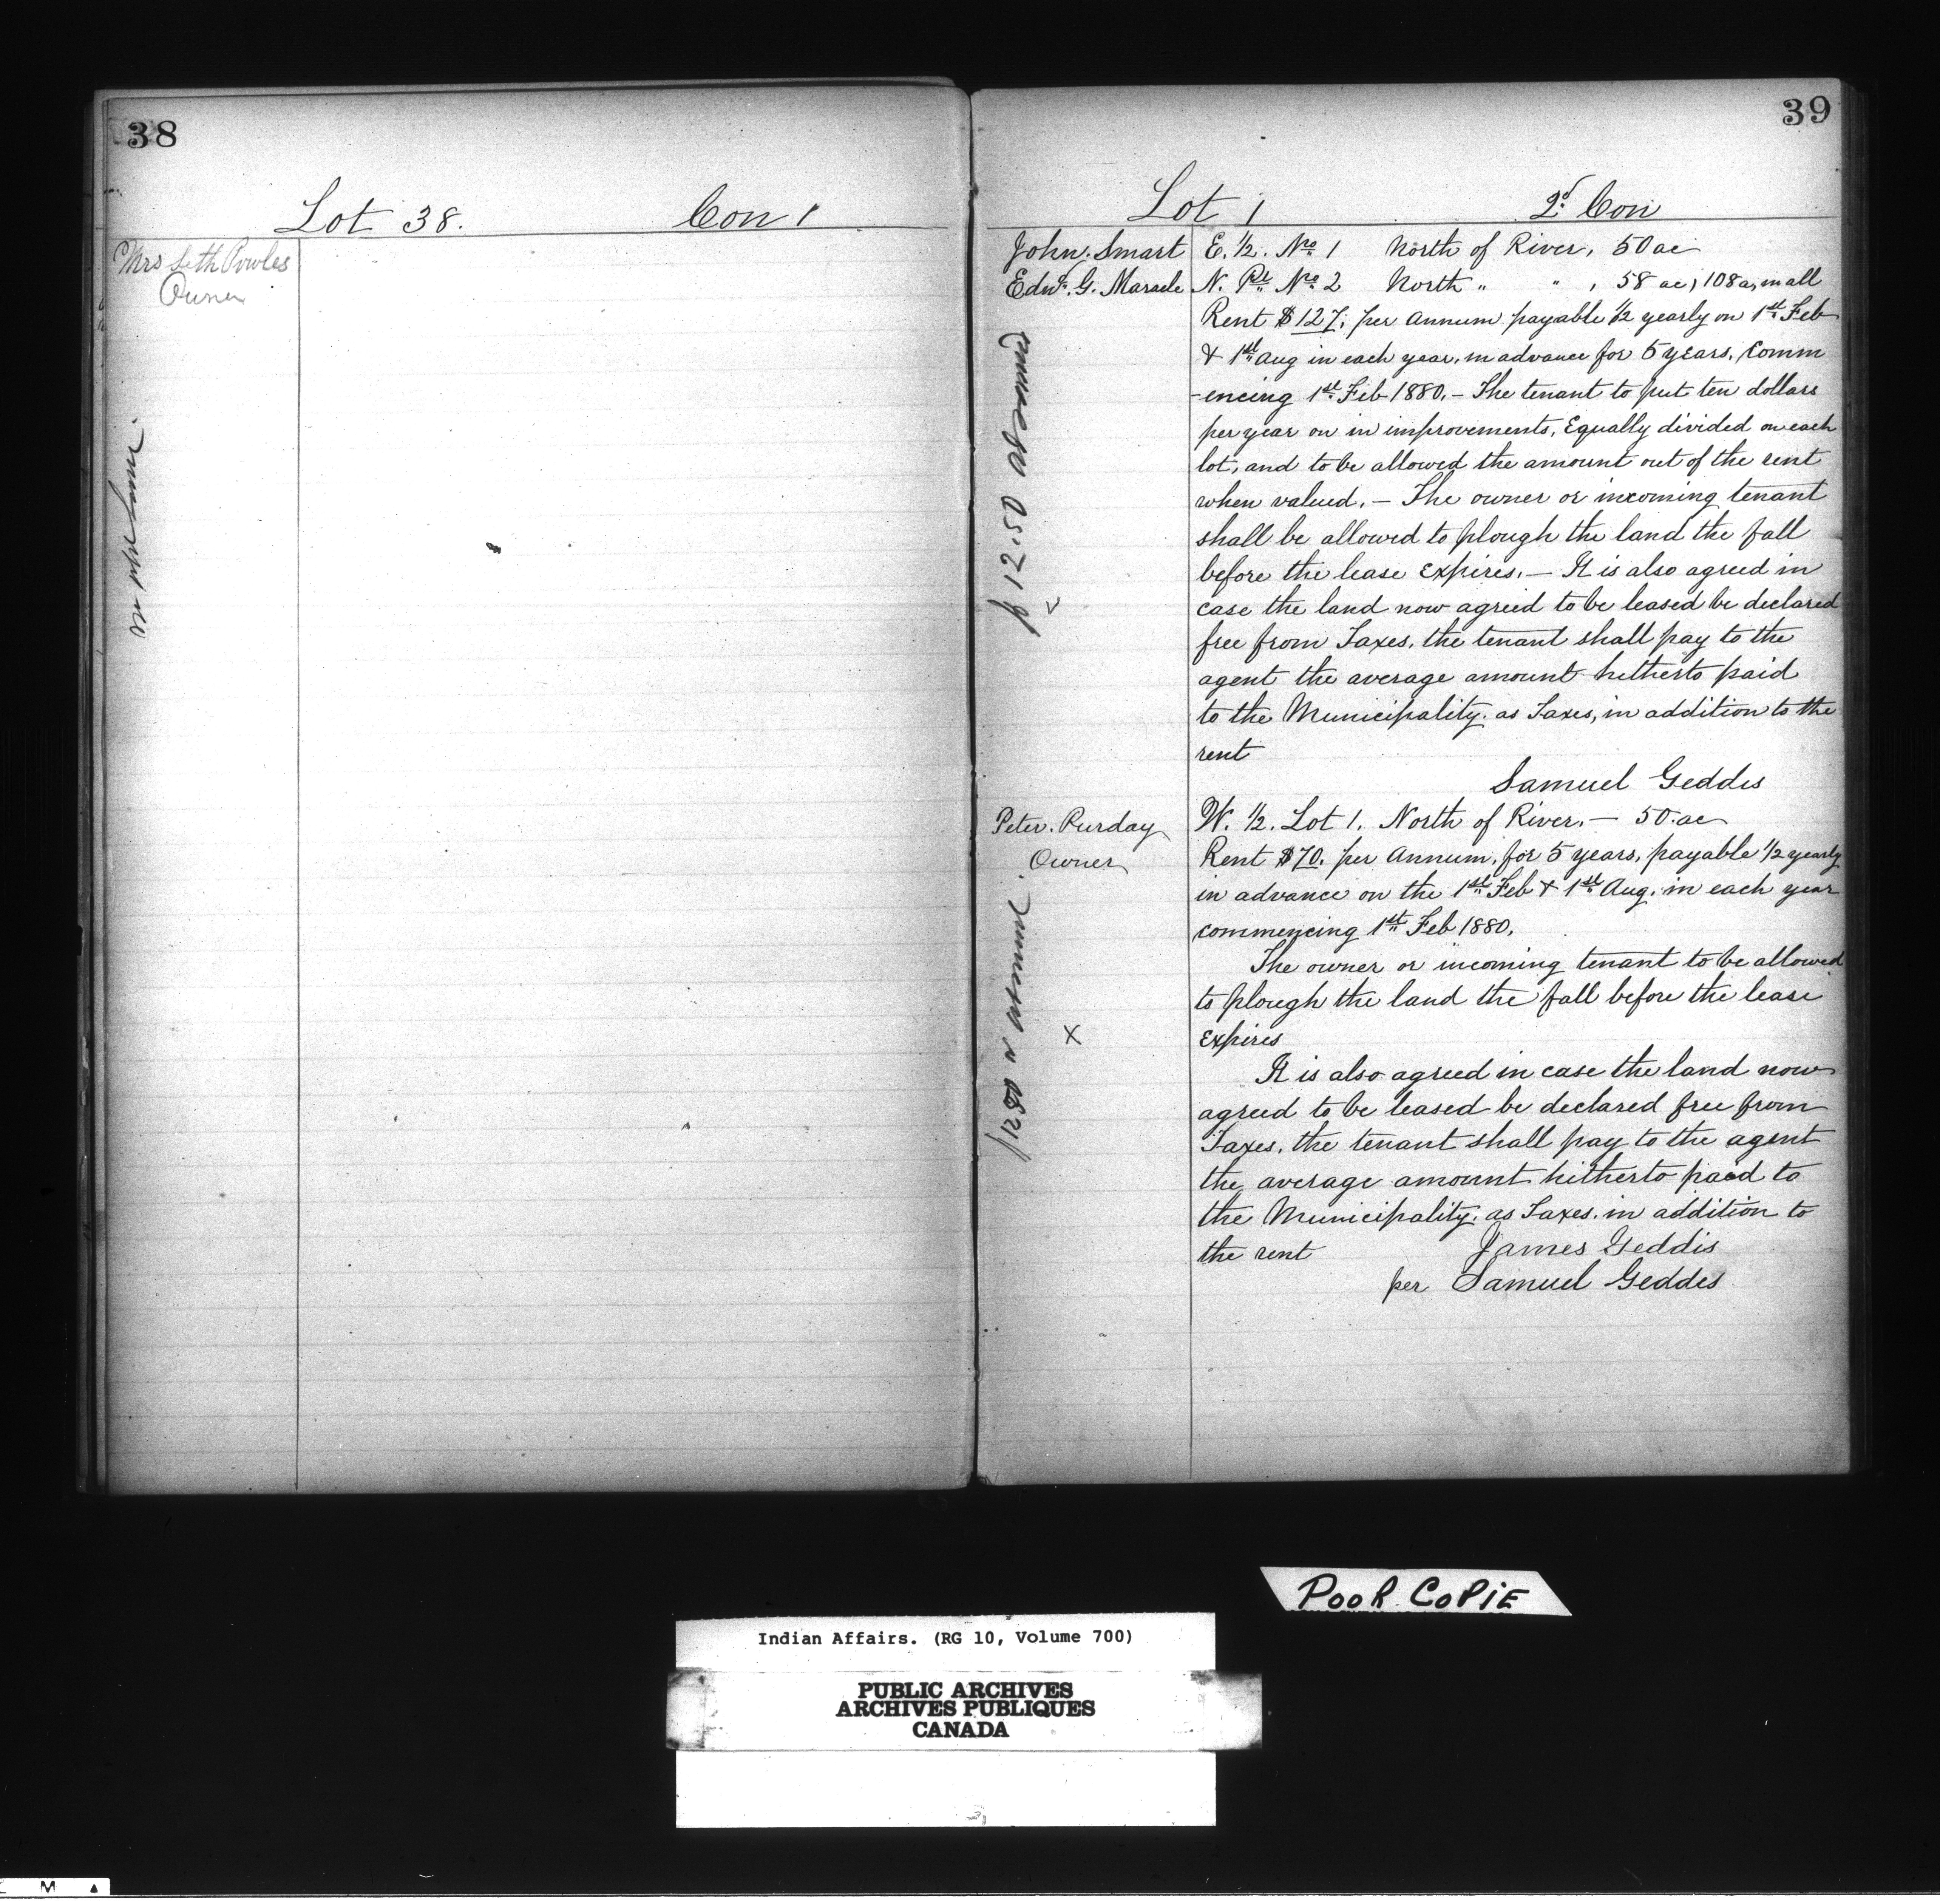 38
Lot 38. Con 1
Mrs Seth Powles
Owner
39
Lot 1 2d. Con
John. Smart
Edwd. G. Maracle
E. ½. No. 1 North of River, 50 ac
N. Pt. No. 2 North " " , 58 ac, 108 a, in all
Rent $127, per Annum payable ½ yearly on 1st. Feb
& 1st. Aug in each year, in advance for 5 years. Comm
-encing 1st. Feb 1880. – The tenant to put ten dollars
per year on in improvements, Equally divided on each
lot, and to be allowed the amount out of the rent
when valued. – The owner or incoming tenant
shall be allowed to plough the land the fall
before the lease Expires. – It is also agreed in
case the land now agreed to be leased be declared
free from Taxes, the tenant shall pay to the
agent the average amount hitherto paid
to the Municipality. as Taxes, in addition to the
rent
Samuel Geddes
12.50
Peter. Purday
Owner
W. ½. Lot 1. North of River. – 50. ac
Rent $70. per Annum, for 5 years, payable ½ yearly
in advance on the 1st. Feb & 1st. Aug. in each year
commencing 1st. Feb 1880.
The owner or incoming tenant to be allowed
to plough the land the fall before the lease
Expires
X
It is also agreed in case the land now
agreed to be leased be declared free from
Taxes, the tenant shall pay to the agent
the average amount hitherto paid to
the Municipality. as Taxes. in addition to
the rent
James Geddis
per Samuel Geddes
POOR COPIE
Indian Affairs. (RG 10, Volume 700)
PUBLIC ARCHIVES
ARCHIVES PUBLIQUES
CANADA
M